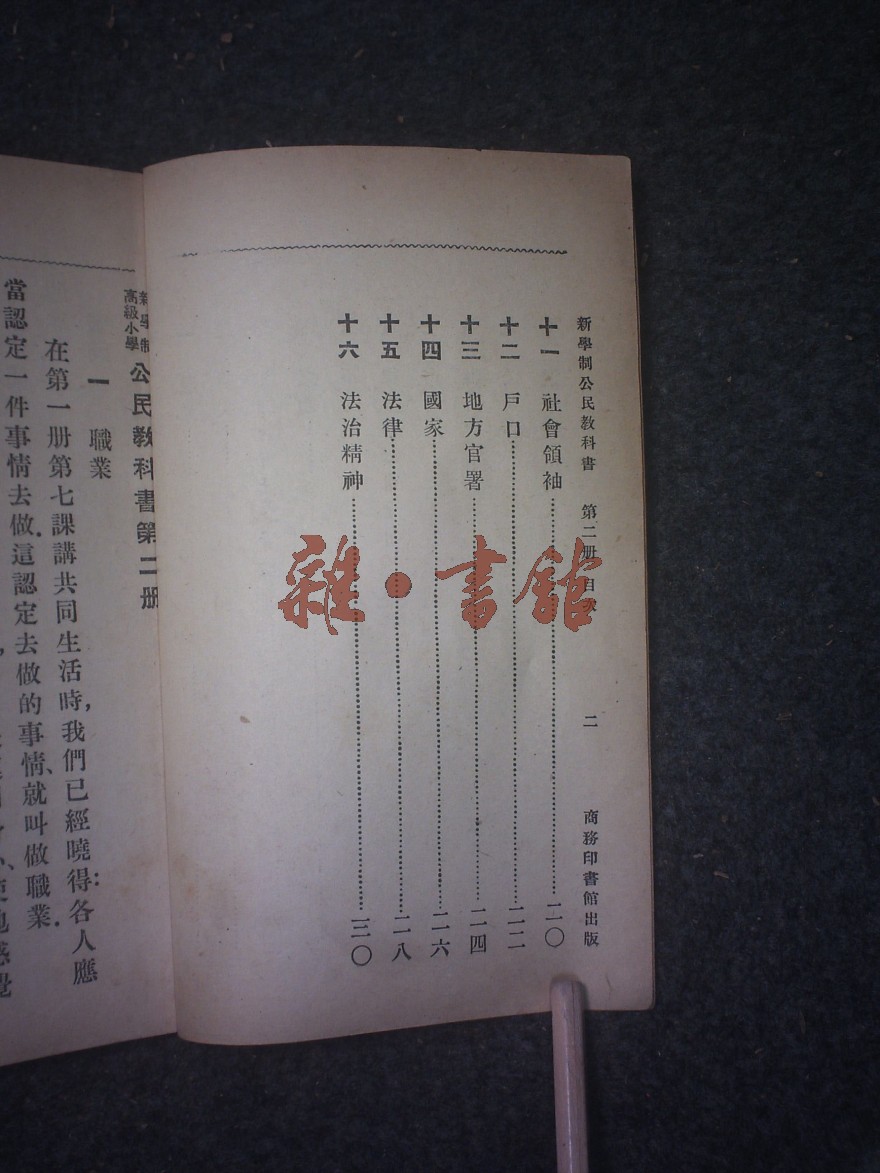 新學制公民教科書 第二册 目次 二 商務印書館出版
十一 社會領袖 二〇
十二 戶口 二二
十三 地方官署 二四
十四 國家 二六
十五 法律 二八
十六 法治精神 三〇
雜·書館
新學制
高級小學
公民教科書第二册
一 職業
在第一册第七課講共同生活時,我們已經曉得:各人應
當認定一件事情去做.這認定去做的事情、就叫做職業.